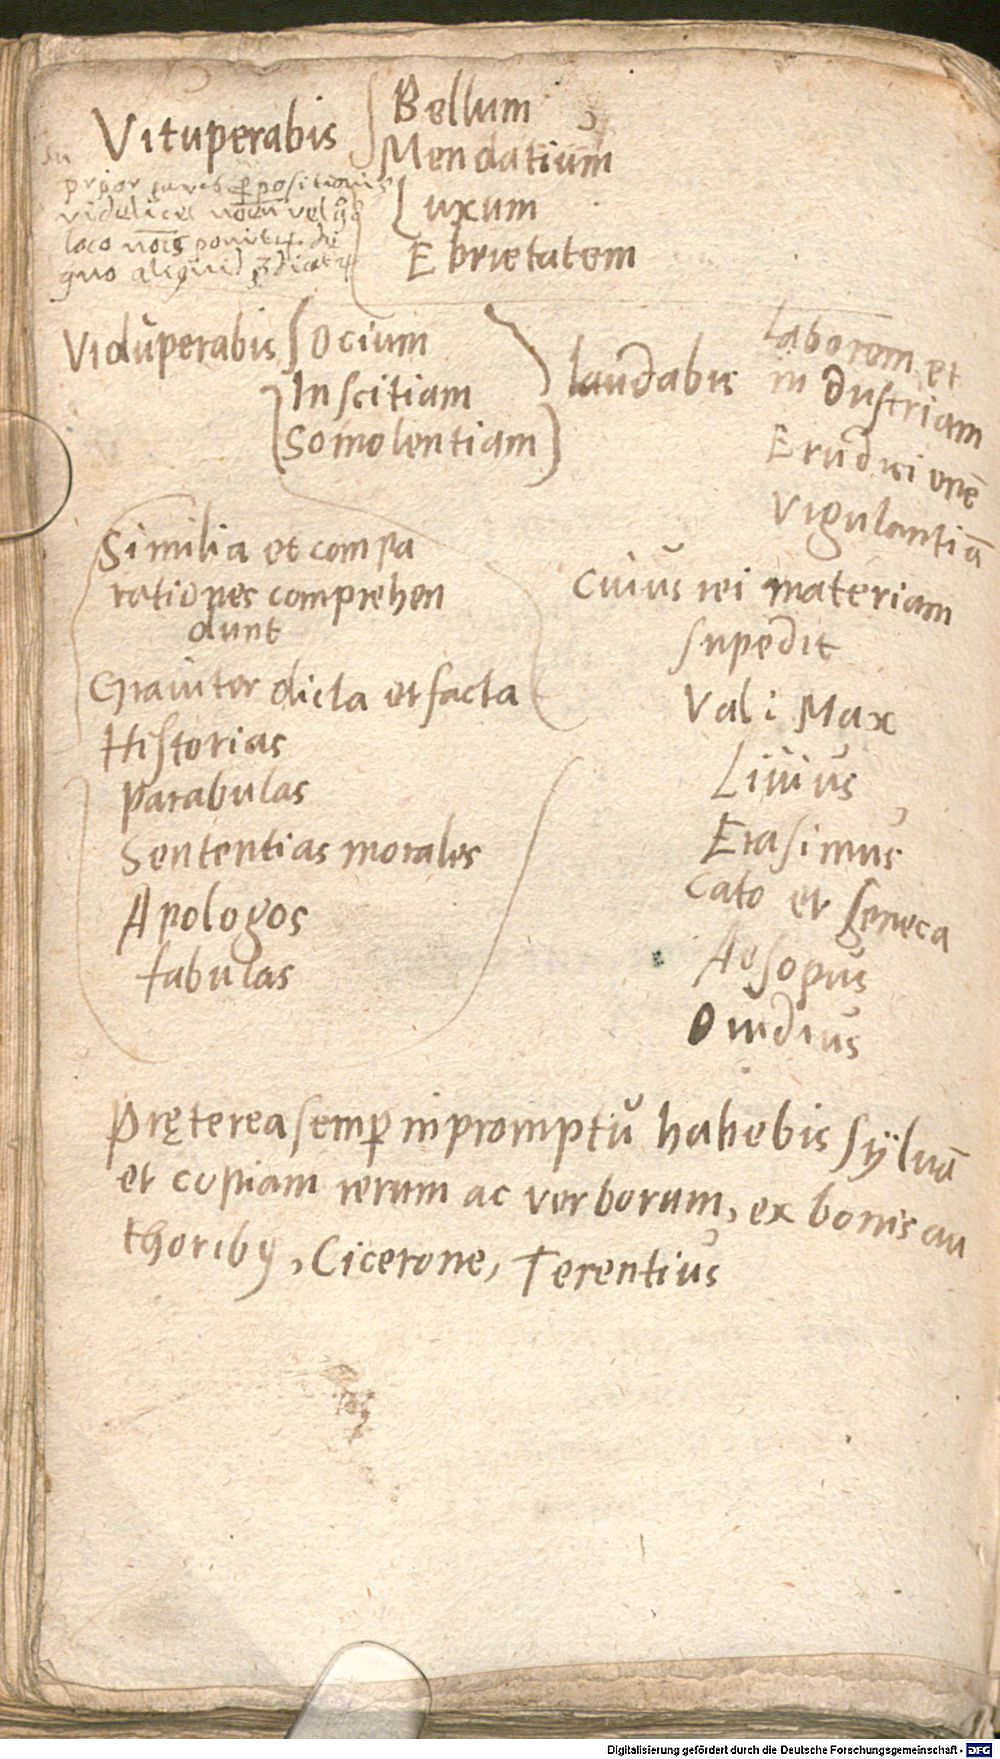 Vituperabis
Bellum
Mendatiŭm
Luxum
Ebrietatem
prior p̲positionis
videlicet nōēn vel
loco nōīs ponitur de
quo aliquid p̲dicatur
Vidŭperabis
Ocium
Inscitiam
Somolentiam
laudabis
Laborem et
in dustriam
Erudici onē
Vigulantiā
Similia et compa
rationes comprehen
dunt
Grauiter dicta et facta
Historias
Parabulas
Sententias morales
Apologos
fabulas
Cuiŭs rei materiam
supedit
Vali Max
Liuiŭs
Erasimus
Cato et Seneca
Aesopŭs
Ouidiŭs
Prętereasemp̲ inpromptŭ habebis sÿluā
et copiam rerum ac verborum, ex bonis au
thoribꝰ, Cicerone, Terentiŭs
Digitalisierung gefördert durch die Deutsche Forschungsgemeinschaft - DFG